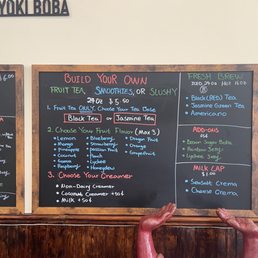 YOKI BOBA
Build Your Own
Fruit Tea, Smoothies, or Slushy
24oz $5.50
1. Fruit Tea ONLY: Choose Your Tea Base
Black Tea or Jasmine Tea
2. Choose Your Fruit Flavor (Max 3)
• Lemon
• Mango
• Pineapple
• Coconut
• Guava
• Peach
• Lychee
• Blueberry
• Strawberry
• Passion Fruit
• Honeydew
• Dragon Fruit
• Orange
• Grapefruit
3. Choose Your Creamer
• Non-Dairy Creamer
• Coconut Creamer +50¢
• Milk +50¢
Fresh Brew
• Black (Red) Tea
• Jasmine Green Tea
• Americano
Add-ons
• Brown Sugar Boba
• Rainbow Jelly
• Lychee Jelly
Milk Cap
$1.00
• Seasalt Crema
• Cheese Crema